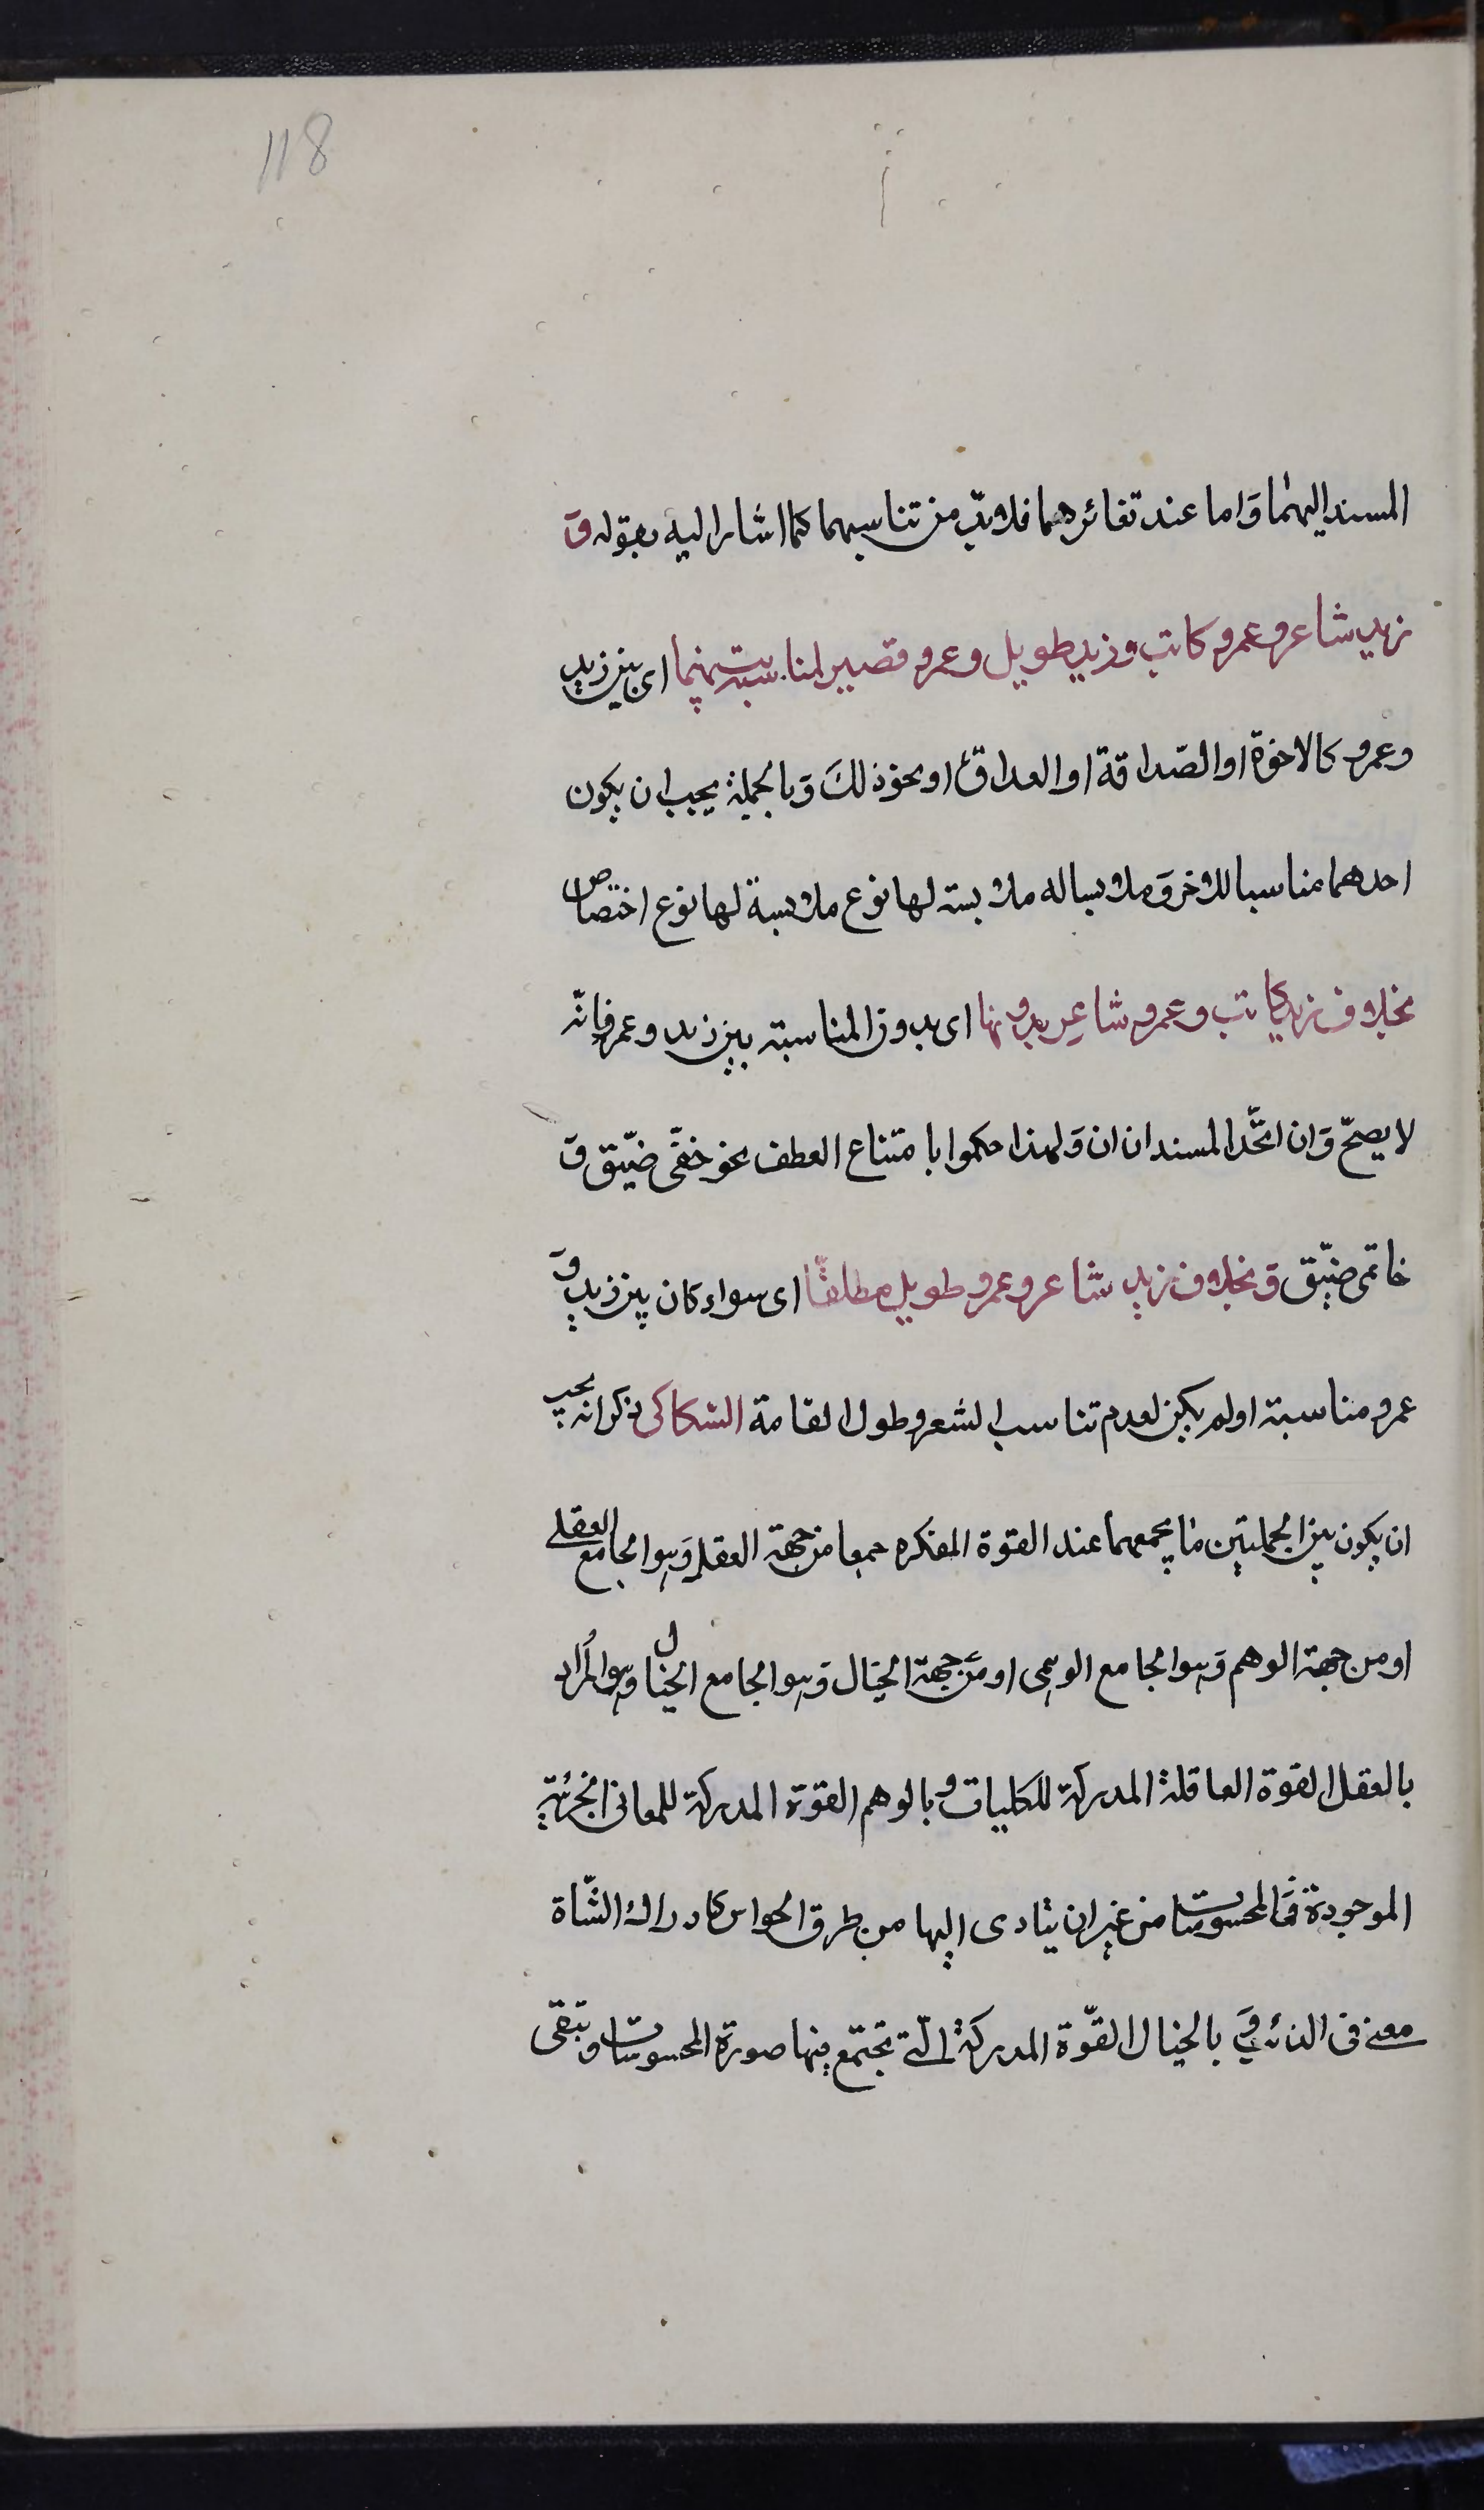 118
المسند اليهما وَاما عند تغائرهما فلا بدّ من تناسبهما كما اشار اليه بقوله وَ
زيد شاعر وعمرو كاتب وزيد طويل وعمرو قصير لمناسبة بينهما اى بين زيد
وعمرو كالاخوة او الصّداقة او العداوة او نحو ذلكَ وَبالجملة يجب ان يكون
احدهما مناسبا للاخر وَملابسا له ملابسة لها نوع ملابسة لها نوع اختصاص
بخلاف زيد كاتب وعمرو شاعر بدونها اى بدون المناسبة بين زيد وعمرو فانّه
لا يصحّ وَان اتّحد المسندان ان وَلهذا حكموا بامتناع العطف نحو خفّى ضيّق وَ
خاتمى ضيّق وَبخلاف زيد شاعر وعمرو طويل مطلقًا اى سواء كان بين زيد وَ
عمرو مناسبة اولم يكن لعدم تناسب الشعر وطول القامة السّكاكى ذكر انه يجب
ان يكون بين الجملتين ما يجمعهما عند القوة المفكره جمعا من جهة العقل وَهو الجامع العقلى
او من جهة الوهم وَهو الجامع الوهمى او من جهة الخيال وَهو الجامع الخيال وهو المُراد
بالعقل القوة العاقلة المدركة للكليات وبالوهم القوة المدركة للمعانى الجزئيّة
الموجودة فى المحسوسات من غير ان يتادى اليها من طرق الحواس كادراك الشّاة
معنى فى الذئب وَبالخيال القوّة المدركة الّتى تجتمع فيها صورة المحسوسات وتبقى